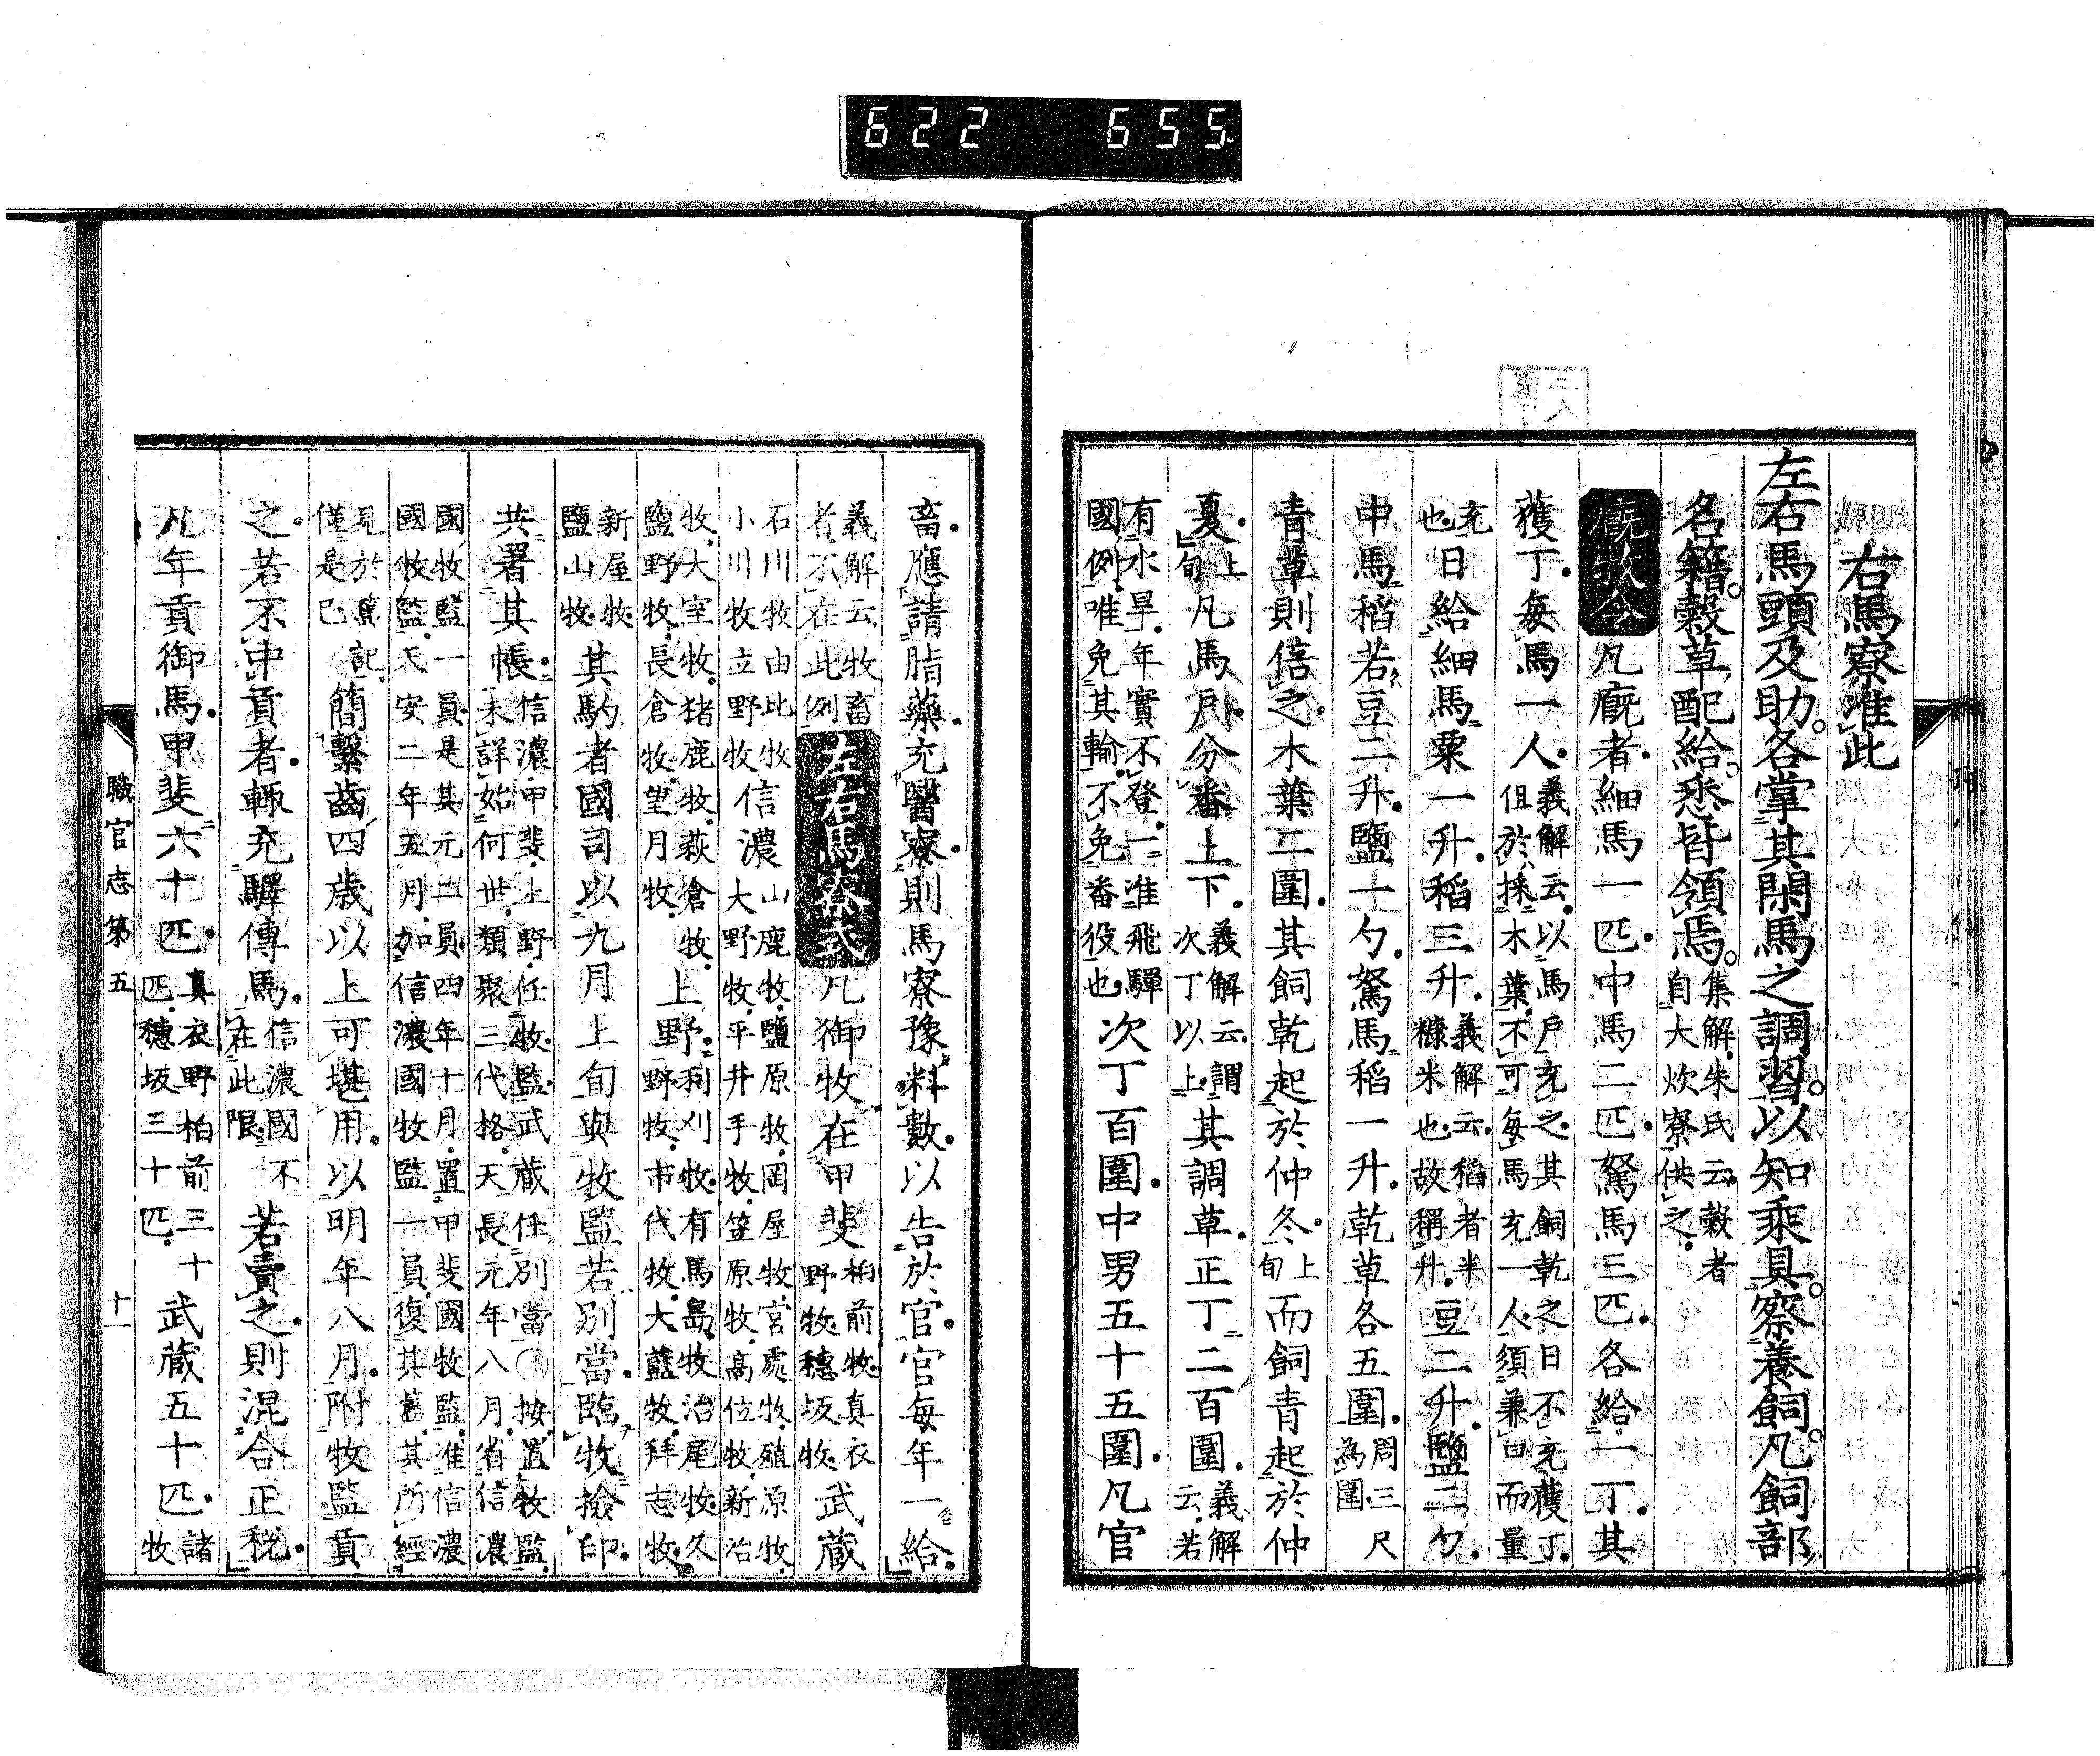 622 655
右馬寮准此
左右馬頭及助。各掌其閑馬之調習。以知乘具。察養飼。凡飼部
名籍。穀草配給。悉皆領焉。集解朱氏云。穀者自大炊寮供之。
厩牧令凡廐者。細馬一匹。中馬二匹。駑馬三匹。各給一丁。其
獲丁。每馬一人。義解云。以馬戶充之。其飼乾之日。不充獲丁。但於採木葉。不可每馬充一人。須兼口而量
充也。日給細馬粟一升。稻三升。義解云。稻者半糠米也。故稱升。豆二升。鹽二勺。
中馬稻若豆二升。鹽一勺。駑馬稻一升。乾草各五圍。周三尺為圍。
青草則倍之。木葉二圍。其飼乾起於仲冬。上旬而飼青起於仲
夏。上旬凡馬戶。分番上下。義解云。謂次丁以上。其調草。正丁二百圍。義解云。若
有水旱。年實不登。一准飛驒國例。唯免其輸。不免番役也。次丁百圍。中男五十五圍。凡官
畜。應請脂藥。充醫寮。則馬寮豫料數。以告於官。官每年一給。
義解云。牧畜者不在此例左右馬寮式凡御牧在甲斐柏前牧。真衣野牧。穗坂牧。武藏
石川牧。由比牧。小川牧。立野牧。信濃山鹿牧。鹽原牧。岡屋牧。宮處牧。殖原牧。大野牧。平井手牧。笠原牧。高位牧。新治
牧。大室牧。猪鹿牧。萩倉牧。鹽野牧。長倉牧。望月牧。上野。利刈牧。有馬島牧。治尾牧。久野牧。市代牧。大藍牧。拜志牧。
新屋牧。鹽山牧。其駒者國司以九月上旬與牧監若別當。臨牧撿印。
共署其帳。信濃。甲斐。上野。任牧監。武藏任別當〇按。置牧監。未詳始何世。類聚三代格。天長元年八月。省信濃
國牧監一員。是其元二員。四年十月。置甲斐國牧監。准信濃國牧監。天安二年五月。加信濃國牧監一員。復其舊。其所經
見於舊記。僅是已。簡繫齒四歲以上可堪用。以明年八月。附牧監貢
之。若不中貢者。輙充驛傳馬。信濃國不在此限若賣之。則混合正稅。
凡年貢御馬。甲斐六十匹。真衣野柏前三十匹。穗坂三十匹。武藏五十匹。諸牧
職官志第五 十一